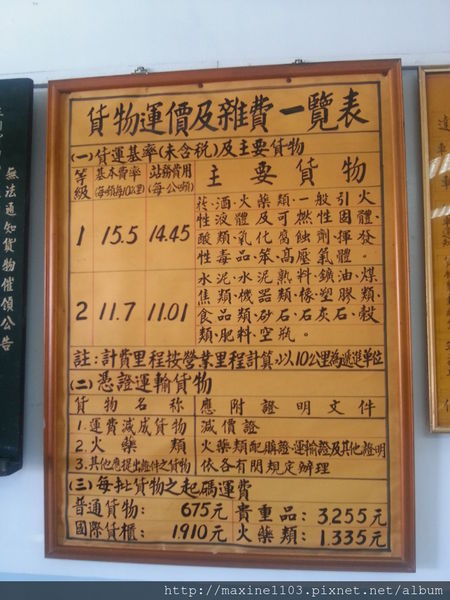 無法通知貨物催領公告
貨物運價及雜費一覽表
(一)貨運基率(未含稅)及主要貨物
等級
基本費率
(每噸每10公里)
站務費用
(每公噸)
主要貨物
1
15.5
14.45
菸、酒、火藥類、一般引火
性液體及可燃性固體、
酸類、氧化腐蝕劑、揮發
性毒品、笨、高壓氣體。
2
11.7
11.01
水泥、水泥熟料、鑛油、煤
焦類、機器類、橡、塑膠類、
食品類、砂石、石灰石、穀
類、肥料、空瓶。
註:計費里程按營業里程計算,以10公里為遞進單位
(二)憑證運輸貨物
貨物名稱
應附證明文件
1.運費減成貨物
減價證
2.火藥類
火藥類配購證、運輸證及其他證明
3.其他應提出證件之貨物
依各有関規定辦理
(三)每批貨物之起碼運費
普通貨物:675元
貴重品:3,255元
國際貨櫃:1,910元
火藥類:1,335元
http://maxine1103.pixnet.net/album